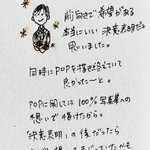 前向きで希望がある
本当にいい決意表明だと
思いました。
同時にPOPを描き終えていて
良かった〜と。
POPに関しては100%写真集への
想いで描けたから。
「決意表明」の後だったら